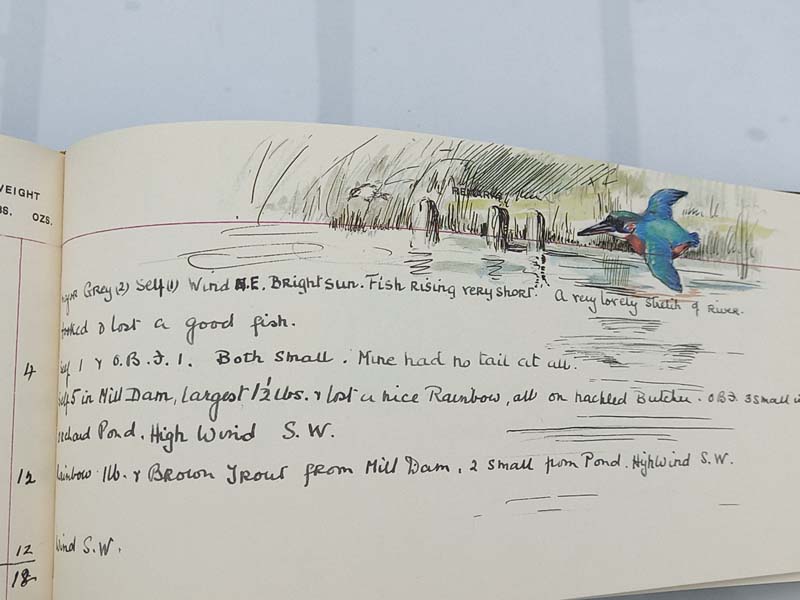 WEIGHT
LBS. OZS.
REMARKS
Major Grey (2) Self (1) Wind N.E. Bright sun. Fish Rising very short. A very lovely stretch of River.
Hooked & lost a good fish.
4 Self 1 & O.B.J. 1. Both small. Mine had no tail at all.
Self 5 in Mill Dam, largest 1½ lbs. & lost a nice Rainbow, all on hackled Butcher. OBJ. 3 small in
Orchard Pond. High Wind S.W.
12 Rainbow 1lb. & Brown Trout from Mill Dam. 2 small from Pond. High Wind S.W.
12 Wind S.W.
18